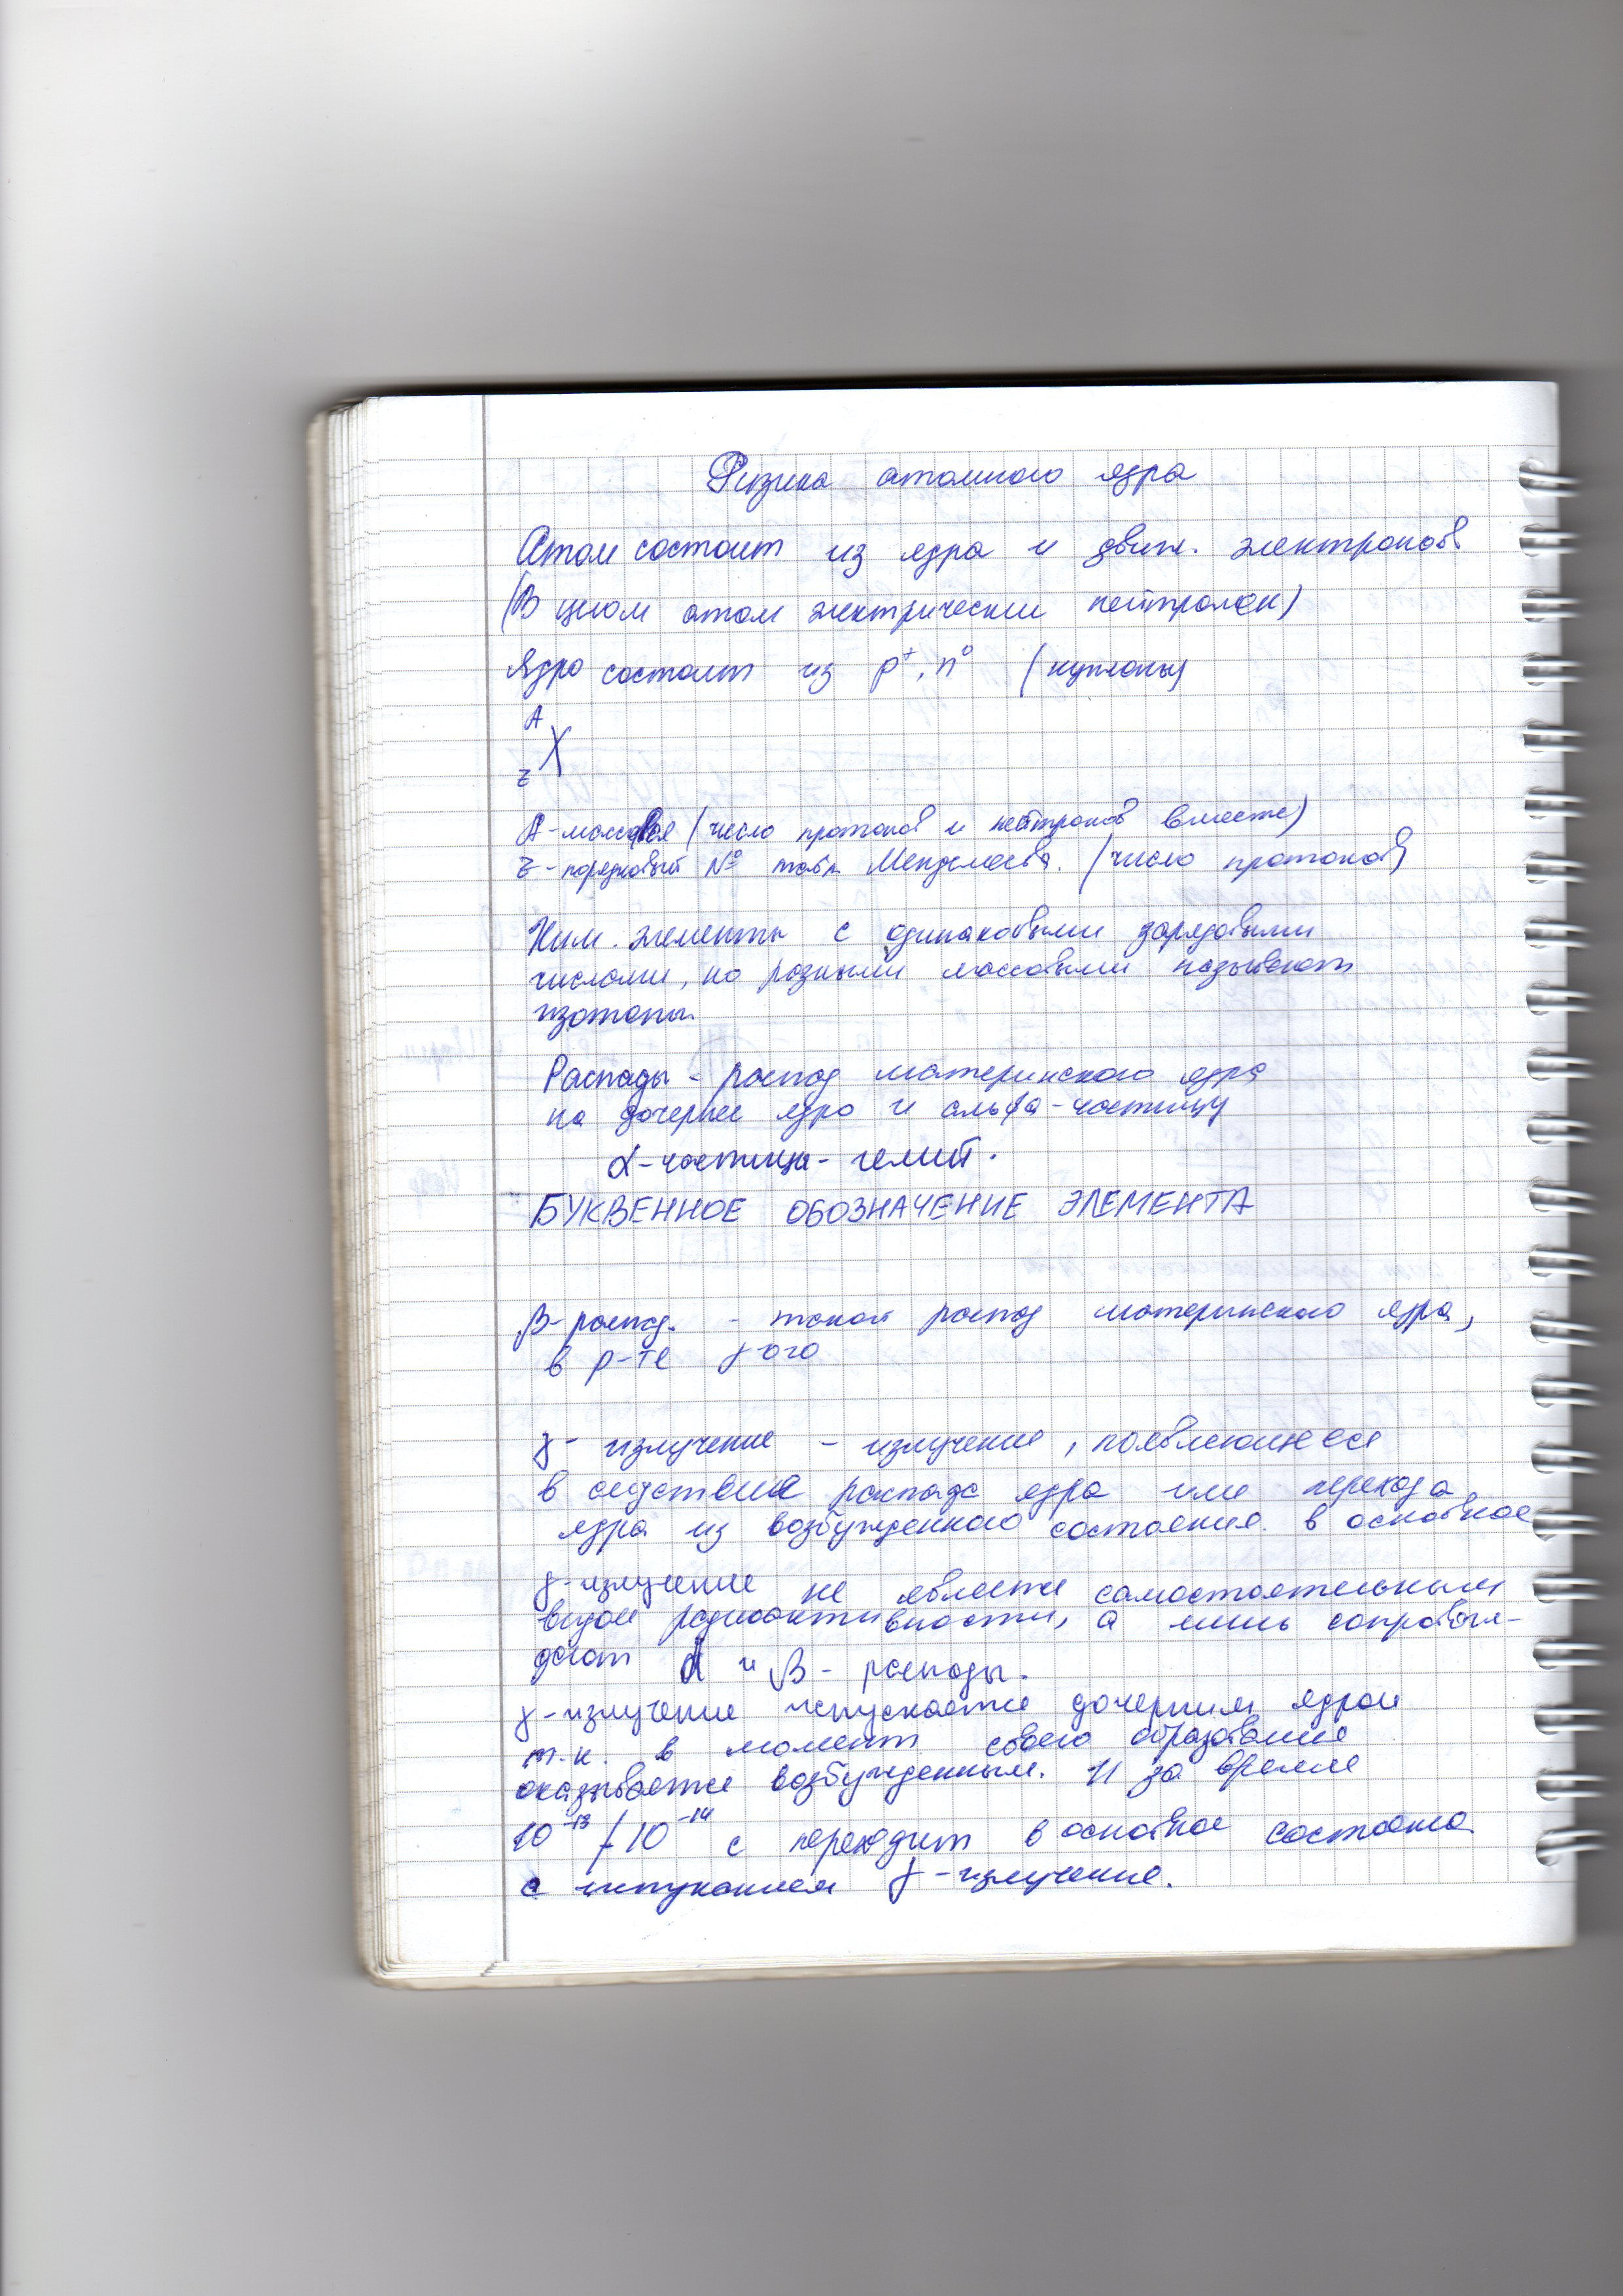 Физика атомного ядра
Атом состоит из ядра и движ. электронов
(В цлом атом электрически нейтрален)
Ядро состоит из p⁺, n⁰ (нуклоны)
A
X
z
A-массовая (число протонов и нейтронов вместе)
Z-порядковый № табл. Менделеева. (число протонов)
Хим. элементы с одинаковыми зарядовыми
числами, но разными массовыми называют
изотопы.
Распады - распад материнского ядра
на дочернее ядро и альфа-частицу
α-частица - гелий.
БУКВЕННОЕ ОБОЗНАЧЕНИЕ ЭЛЕМЕНТА
β-распад. - такой распад материнского ядра,
в р-те γ-ого
γ- излучение - излучение, появляющееся
в следствие распада ядра или перехода
ядра из возбужденного состояния в основное
γ-излучение не является самостоятельным
видом радиоактивности, а лишь сопровож-
дает α и β - распады.
γ-излучение испускается дочерним ядром
т.к. в момент своего образования
оказывается возбужденным. И за время
10⁻¹³ / 10⁻¹⁴ с переходит в основное состояние
с испусканием γ-излучения.